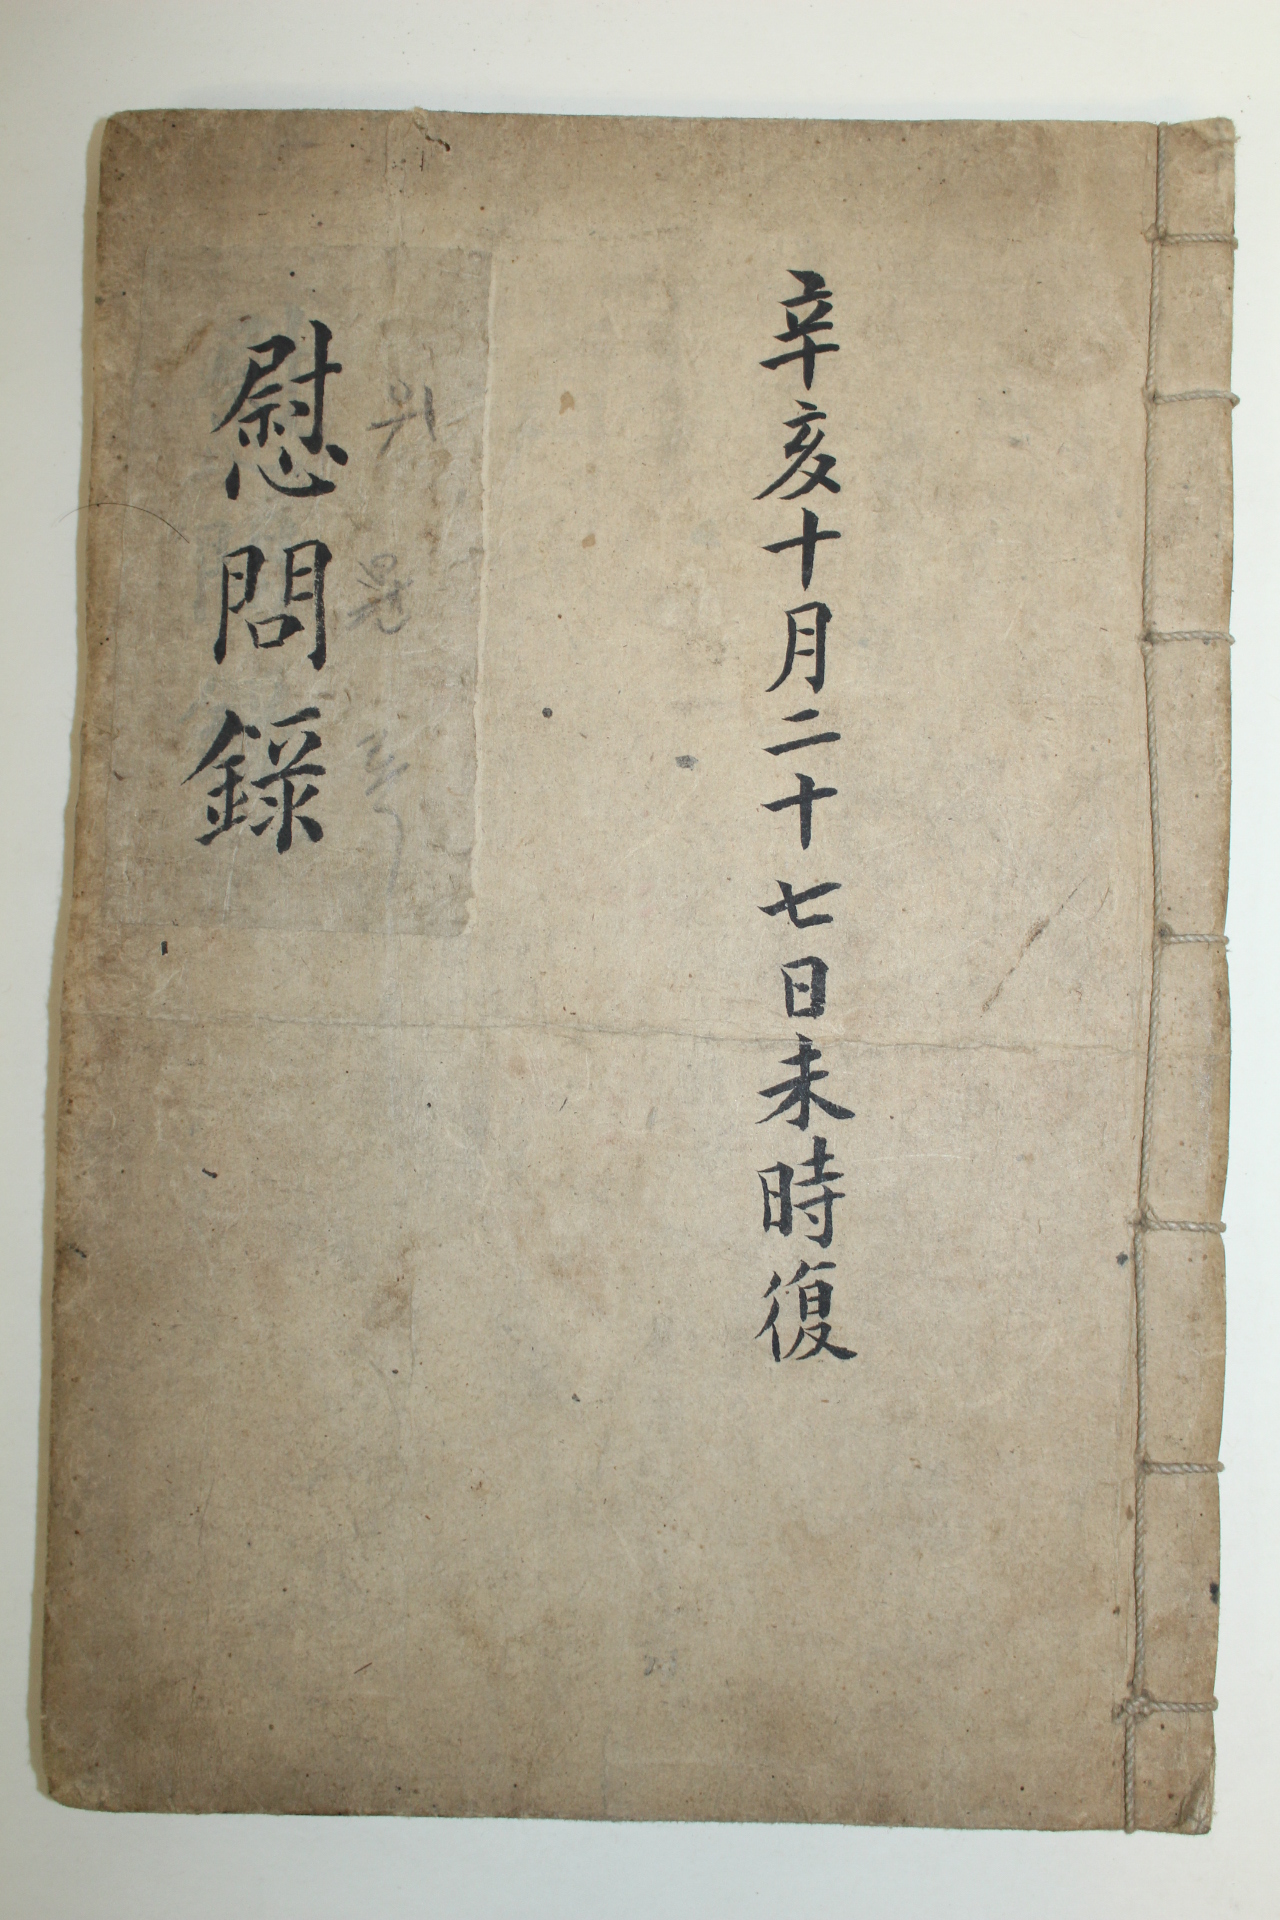 辛亥十月二十七日未時復
위문록
慰問錄